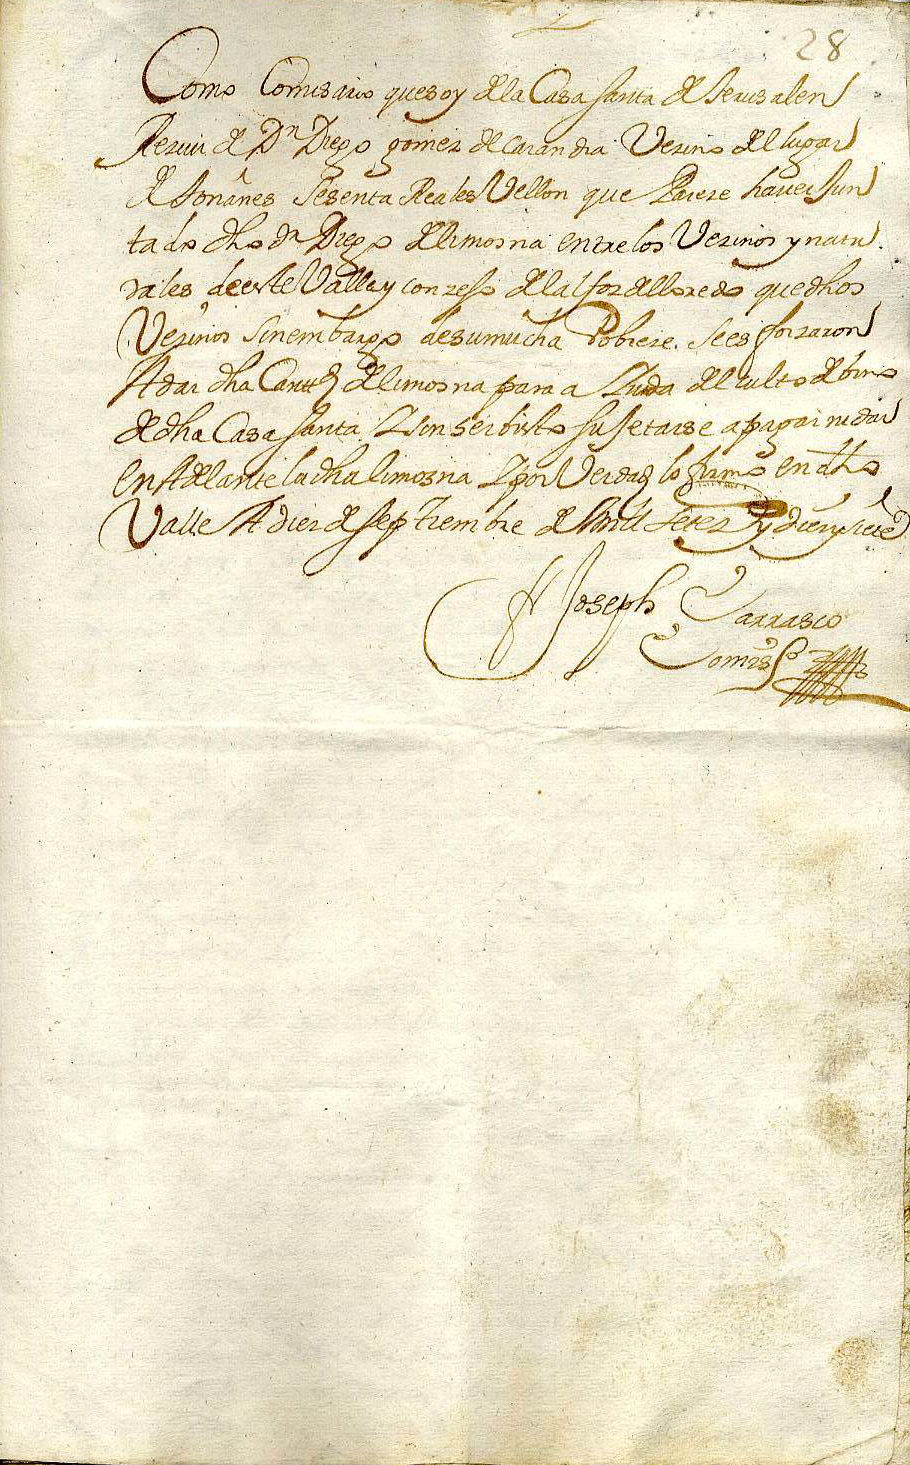 28
Como Comisario que soy de la Casa santa de Jerusalen
Rezivi de Dn Diego gomez de Carandia Vezino del lugar
de Sonanes Sesenta Reales Vellon que Pareze haver Jun
tado dho dn Diego de limosna entre los Vezinos y natu
rales de este Valle y conzejo del alfoz de lloredo que dhos
Vezinos sin embargo de su mucha Pobreze. Se esforzaron
A dar dha Cantd de limosna para aiuda del culto de bino
de dha Casa santa Y sin ser bisto sujetarse a pagar ni dar
en Adelante la dha limosna Y por Verdad lo firmo en dho
Valle A diez de septiembre de Mill setezs y diez y siete
Fr Joseph Carrasco
Comisso